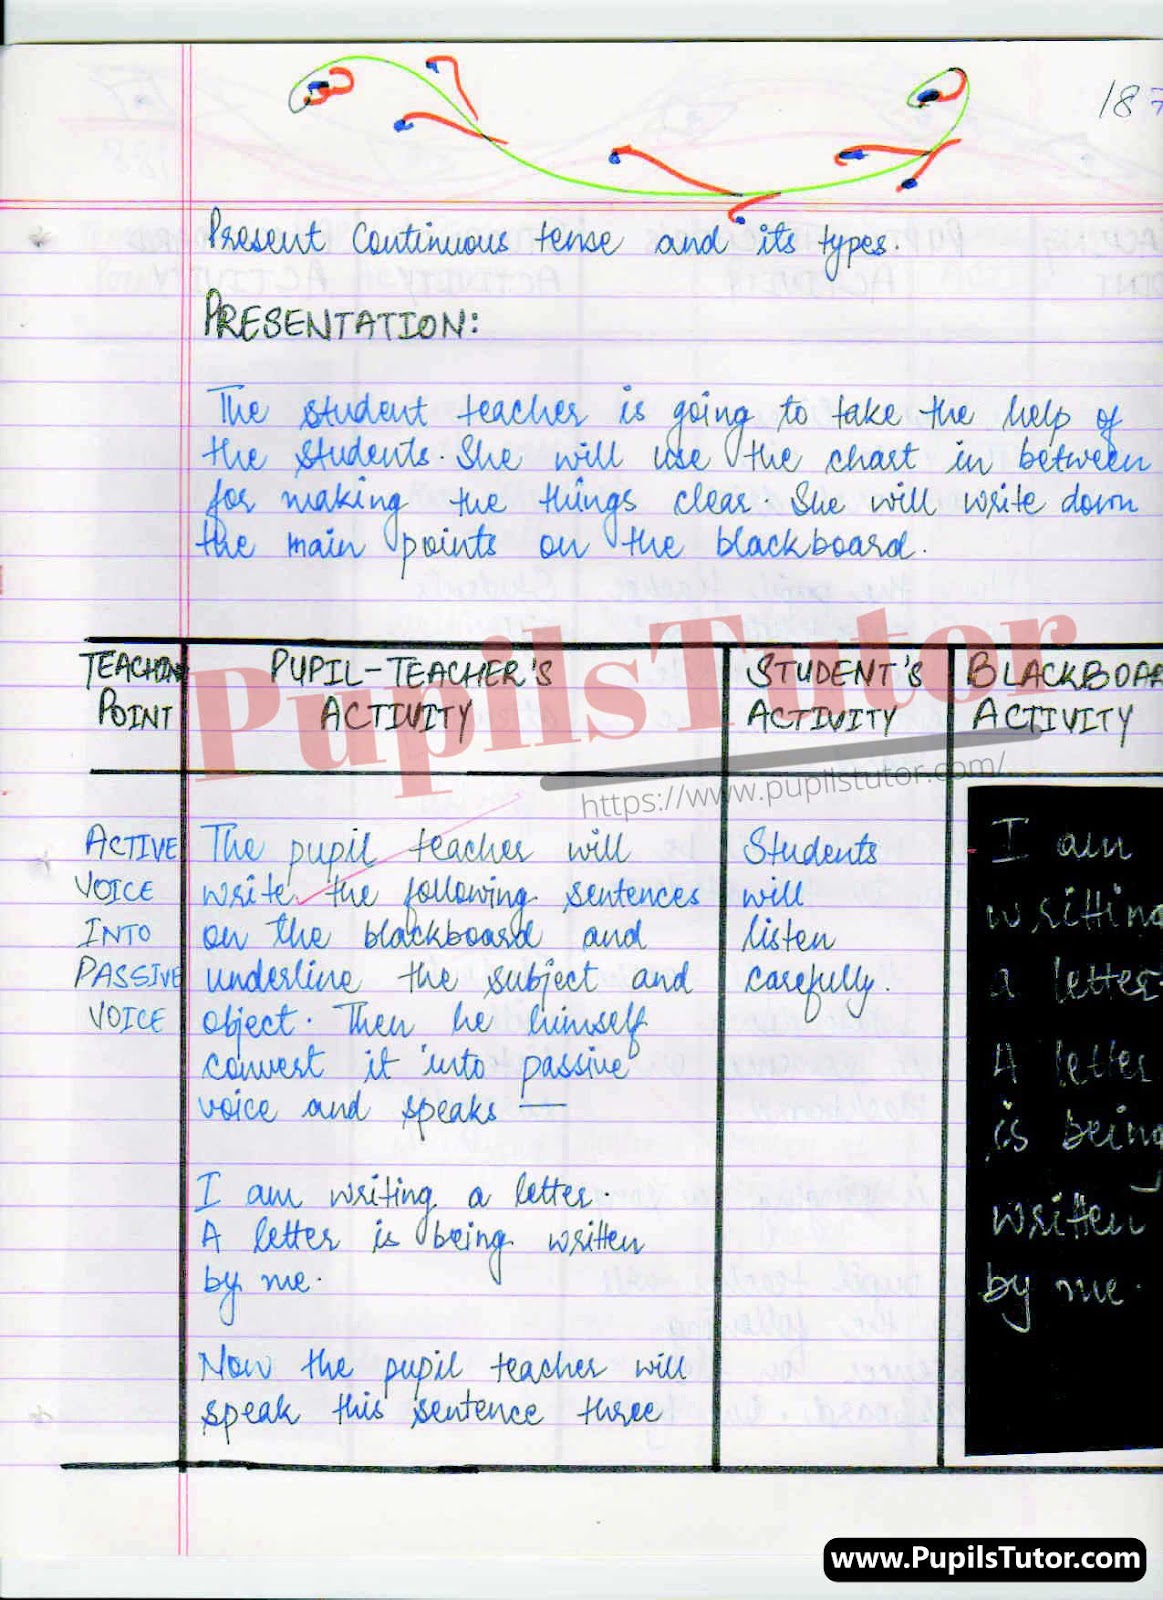 187
Present Continuous tense and its types.
PRESENTATION:
The student teacher is going to take the help of
the students. She will use the chart in between
for making the things clear. She will write down
the main points on the blackboard.
TEACHING
POINT
PUPIL-TEACHER'S
ACTIVITY
STUDENT'S
ACTIVITY
BLACKBOAR
ACTIVITY
PupilsTutor
https://www.pupilstutor.com/
ACTIVE
VOICE
INTO
PASSIVE
VOICE
The pupil teacher will
write the following sentences
on the blackboard and
underline the subject and
object. Then he himself
convert it into passive
voice and speaks —
I am writing a letter.
A letter is being written
by me.
Now the pupil teacher will
speak this sentence three
Students
will
listen
carefully.
I am
writting
a letter.
A letter
is being
written
by me.
www.PupilsTutor.com